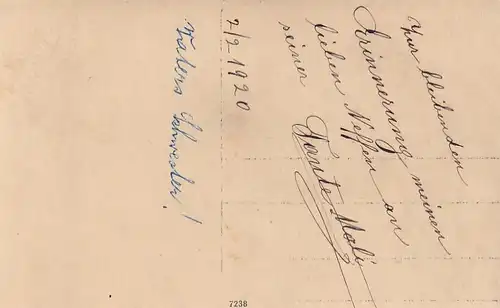 Zur bleibenden
Erinnerung meinen
lieben Neffen an
seiner
Tante Mali
7/2 1920
Vaters Schwester!
7238